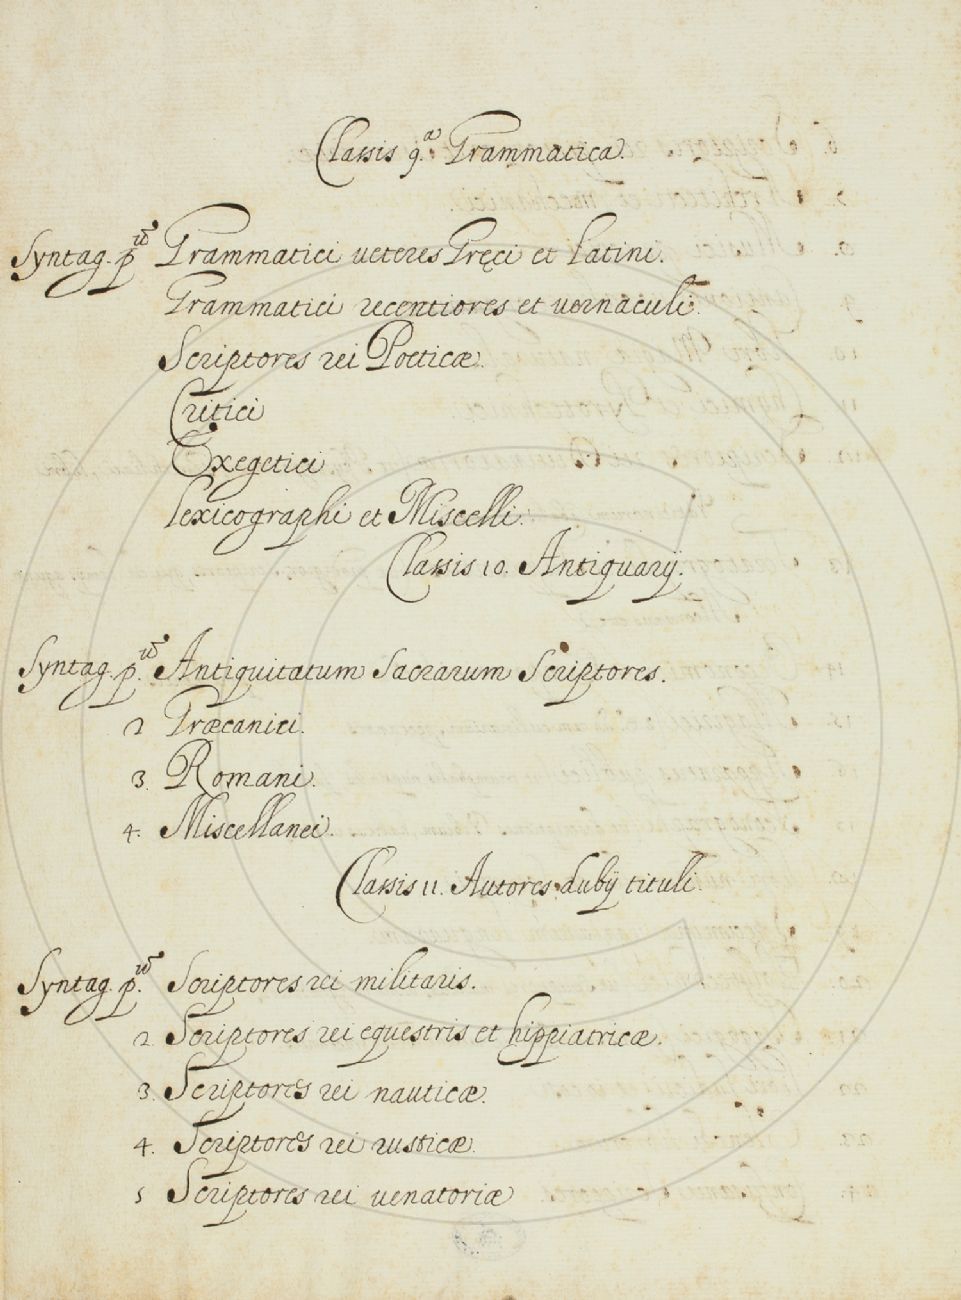 Classis 9.ª Grammatica.
Syntag. p.ᵘᵐ Grammatici veteres Gręci et Latini.
Grammatici recentiores et vernaculi.
Scriptores rei Poeticæ.
Critici
Exegetici
Lexicographi et Miscelli.
Classis 10. Antiquarij.
Syntag. p.ᵘᵐ Antiquitatum Sacrarum Scriptores.
2 Græcanici.
3. Romani.
4. Miscellanei.
Classis 11. Autores dubij tituli.
Syntag. p.ᵘᵐ Scriptores rei militaris.
2. Scriptores rei equestris et hippiatricæ.
3. Scriptores rei nauticæ.
4. Scriptores rei rusticæ.
5 Scriptores rei venatoriæ